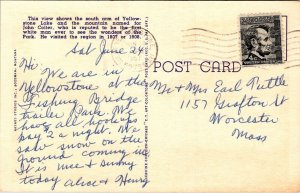 This view shows the south arm of Yellow-
stone Lake and the mountain named for
John Colter, who is reported to be the first
white man ever to see the wonders of the
Park. He visited the region in 1807 or 1808.
Sat June 24
Hi,
We are in
Yellowstone at the
Fishing Bridge
Trailer Park. We
have all hookups
pay 2 a night. We
saw snow on the
ground coming in
It is nice & sunny
today Alice & Henry
POST CARD
Mr & Mrs Earl Tuttle
1157 Grafton St
Worcester
Mass